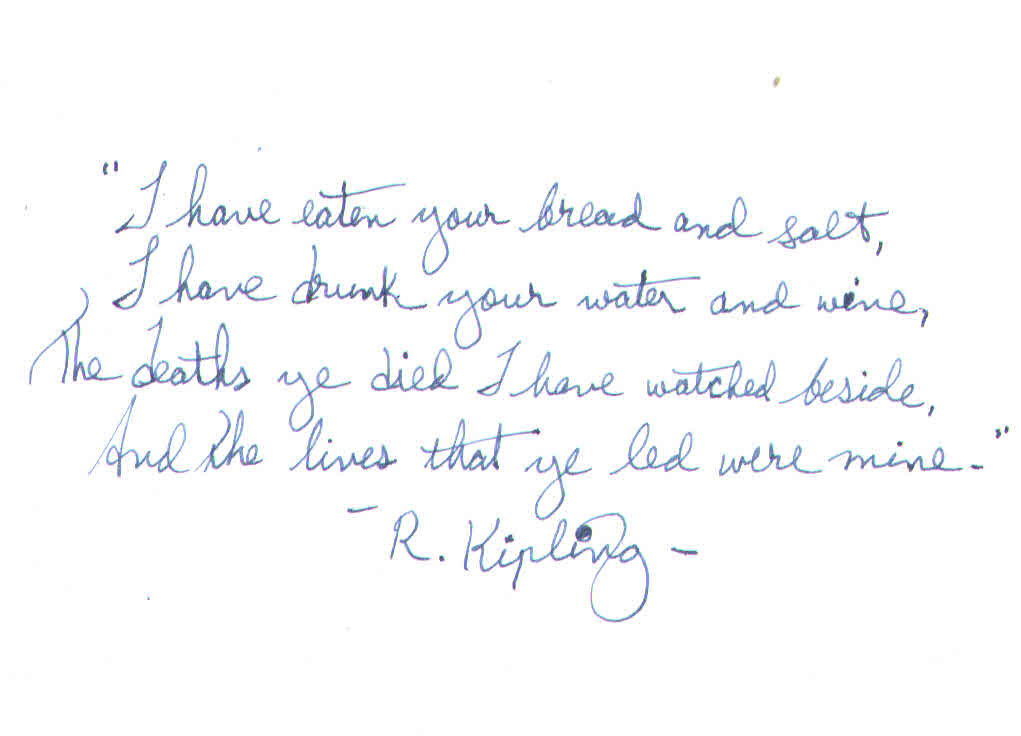 "I have eaten your bread and salt,
I have drunk your water and wine,
The deaths ye died I have watched beside,
And the lives that ye led were mine."
- R. Kipling -